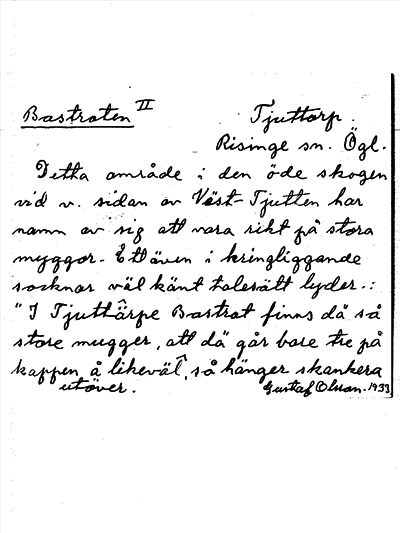 Bastraten II
Tjuttorp.
Risinge sn. Ögl.
Detta område i den öde skogen
vid v. sidan av Väst-Tjutten har
namn av sig att vara rikt på stora
myggor. Ett även i kringliggande
socknar väl känt talesätt lyder.:
"I Tjuttärpe Bastrat finns då så
store mugger, att dä går bare tre på
kappen å likeväl, så hänger skankera
utöver.
Gustaf Olsson. 1933